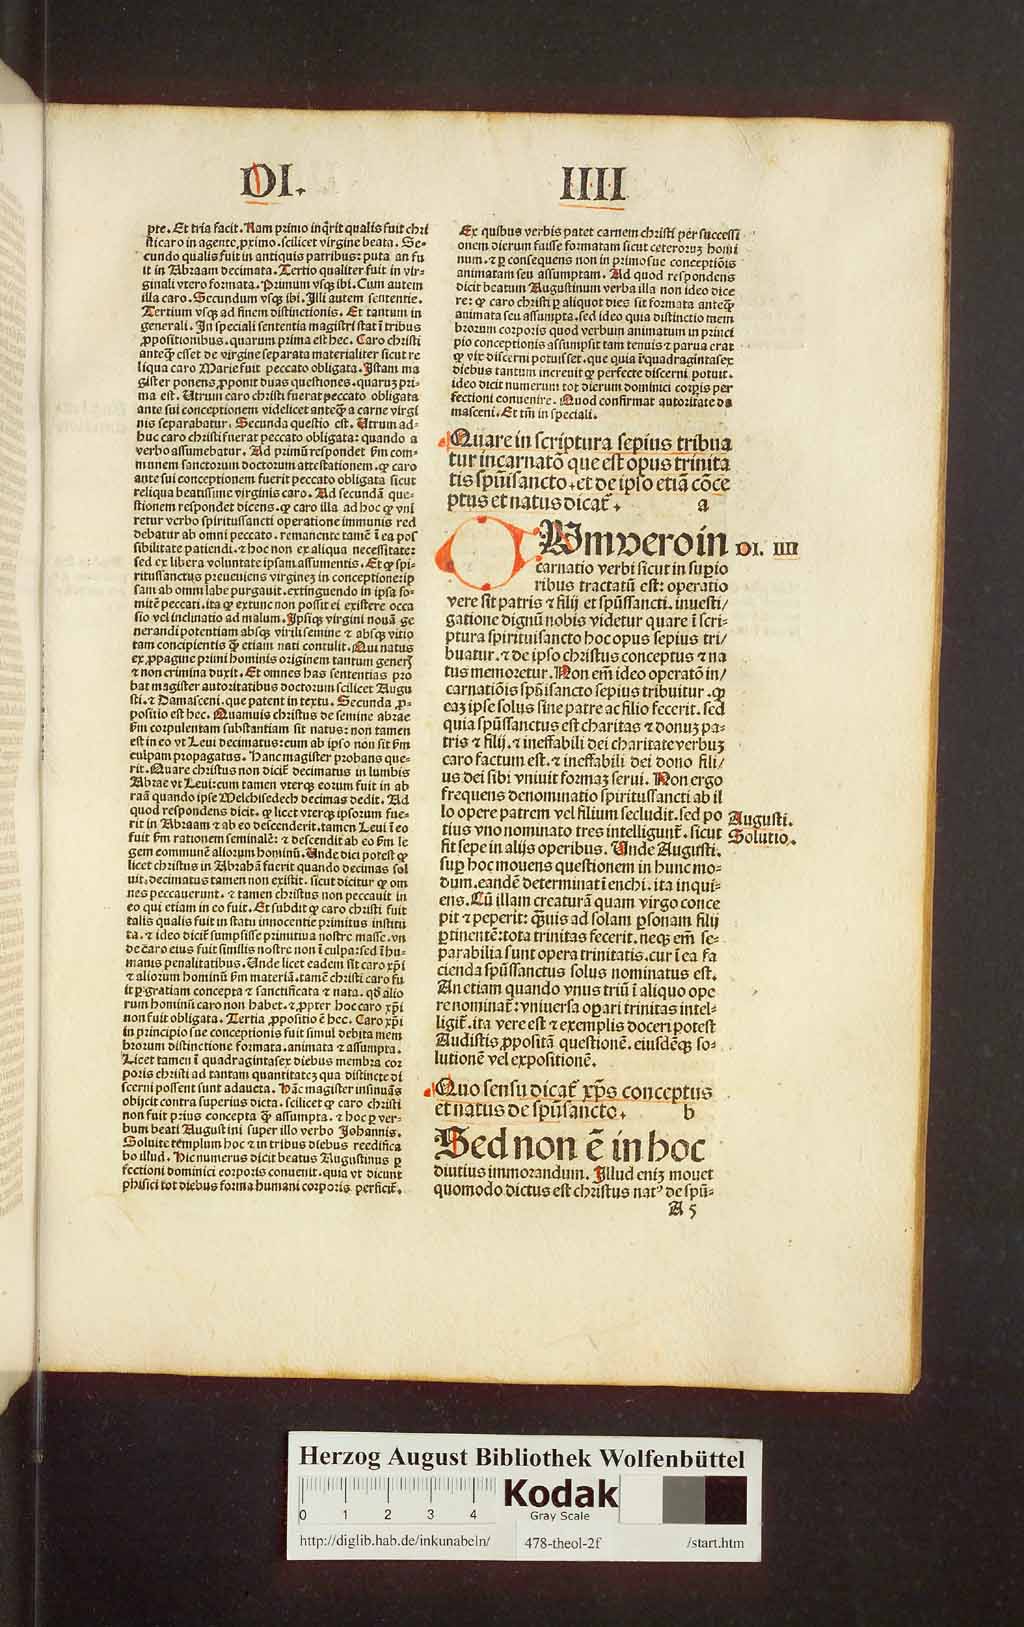 DI.
IIII
pte. Et tria facit. Nam primo inq̄rit qualis fuit chri
sti caro in agente ꝓximo. scilicet virgine beata. Se-
cundo qualis fuit in antiquis patribus: puta an fu
it in Abraam decimata. Tertio qualiter fuit in vir-
ginali vtero formata. Primum vsqꝫ ibi. Cum autem
illa caro. Secundum vsqꝫ ibi. Illi autem sententie.
Tertium vsqꝫ ad finem distinctionis. Et tantum in
generali. In speciali sententia magistri stat ī tribus
ꝓpositionibus. quarum prima est hec. Caro christi
anteqꝫ̄ esset de virgine separata materialiter sicut re
liqua caro Marie fuit peccato obligata. Istam ma
gister ponens ꝓponit duas questiones. quaruꝫ pri-
ma est. Utrum caro christi fuerat peccato obligata
ante sui conceptionem videlicet anteqꝫ̄ a carne virgi
nis separabatur. Secunda questio est. Utrum ad-
huc caro christi fuerat peccato obligata: quando a
verbo assumebatur. Ad primū respondet s̄m com-
munem sanctorum doctorum attestationem. ꝙ caro
ante sui conceptionem fuerit peccato obligata sicut
reliqua beatissime virginis caro. Ad secundā que-
stionem respondet dicens. ꝙ caro illa ad hoc ꝙ vni
retur verbo spiritussancti operatione immunis red
debatur ab omni peccato. remanente tamē ī ea pos
sibilitate patiendi. ⁊ hoc non ex aliqua necessitate:
sed ex libera voluntate ipsam assumentis. Et ꝙ spi-
ritussanctus preueniens virgineꝫ in conceptione: ip
sam ab omni labe purgauit. extinguendo in ipsa fo-
mitē peccati. ita ꝙ ex tunc non possit ei existere occa
sio vel inclinatio ad malum. Ipsiqꝫ virgini nouā ge
nerandi potentiam absqꝫ virili semine ⁊ absqꝫ vitio
tam concipientis qꝫ̄ etiam nati contulit. Qui natus
ex ꝓpagine primi hominis originem tantum generꝭ
⁊ non crimina duxit. Et omnes has sententias pro
bat magister autoritatibus doctorum scilicet Augu
sti. ⁊ Damasceni. que patent in textu. Secunda ꝓ-
positio est hec. Quamuis christus de semine abrae
s̄m corpulentam substantiam sit natus: non tamen
est in eo vt Leui decimatus: cum ab ipso non sit s̄m
culpam propagatus. Hanc magister probans que-
rit. Quare christus non dicit̄ decimatus in lumbis
Abrae vt Leui: cum tamen vterqꝫ eorum fuit in ab
raā quando ipse Melchisedech decimas dedit. Ad
quod respondens dicit. ꝙ licet vterqꝫ ipsorum fue-
rit in Abraam ⁊ ab eo descenderit. tamen Leui ī eo
fuit s̄m rationem seminalē: ⁊ descendit ab eo s̄m le
gem communē aliorum hominū. Unde dici potest ꝙ
licet christus in Abrahā fuerit quando decimas sol
uit. decimatus tamen non existit. sicut dicitur ꝙ om
nes peccauerunt. ⁊ tamen christus non peccauit in
eo qui etiam in eo fuit. Et subdit ꝙ caro christi fuit
talis qualis fuit in statu innocentie primitus institu
ta. ⁊ ideo dicit̄ sumpsisse primitiua nostre masse. vn
de caro eius fuit similis nostre non ī culpa: sed ī hu-
manis penalitatibus. Unde licet eadem sit caro xp̄i
⁊ aliorum hominū s̄m materiā. tamē christi caro fu
it ꝑ gratiam concepta ⁊ sanctificata ⁊ nata. qd̄ alio
rum hominū caro non habet. ⁊ ꝓpter hoc caro xp̄i
non fuit obligata. Tertia ꝓpositio ē hec. Caro xp̄i
in principio sue conceptionis fuit simul debita mem
brorum distinctione formata. animata ⁊ assumpta.
Licet tamen ī quadragintasex diebus membra cor
poris christi ad tantam quantitateꝫ qua distincte di
scerni possent sunt adaucta. Hāc magister insinuās
obijcit contra superius dicta. scilicet ꝙ caro christi
non fuit prius concepta qꝫ̄ assumpta. ⁊ hoc ꝑ ver-
bum beati Augustini super illo verbo Johannis.
Soluite templum hoc ⁊ in tribus diebus reedifica
bo illud. Hic numerus dicit beatus Augustinus ꝑ
fectioni dominici corporis conuenit. quia vt dicunt
phisici tot diebus forma humani corporis perficit̄.
Ex quibus verbis patet carnem christi per successi
onem dierum fuisse formatam sicut ceteroruꝫ homi
num. ⁊ ꝑ consequens non in primo sue conceptiōis
animatam seu assumptam. Ad quod respondens
dicit beatum Augustinum verba illa non ideo dice
re: ꝙ caro christi ꝑ aliquot dies sit formata anteqꝫ̄
animata seu assumpta. sed ideo quia distinctio mem
brorum corporis quod verbum animatum in princi
pio conceptionis assumpsit tam tenuis ⁊ parua erat
ꝙ vix discerni potuisset. que quia ī quadragintasex
diebus tantum increuit ꝙ perfecte discerni potuit.
ideo dicit numerum tot dierum dominici corꝑis per
fectioni conuenire. Quod confirmat autoritate da
masceni. Et tm̄ in speciali.
Quare in scriptura sepius tribua
tur incarnatō que est opus trinita
tis spūisancto. et de ipso etiā cōce
ptus et natus dicat̄. a
CUm vero in
DI. IIII
carnatio verbi sicut in suꝑio
ribus tractatū est: operatio
vere sit patris ⁊ filij et spūssancti. inuesti/
gatione dignū nobis videtur quare ī scri-
ptura spirituisancto hoc opus sepius tri/
buatur. ⁊ de ipso christus conceptus ⁊ na
tus memoretur. Non em̄ ideo operatō in/
carnatiōis spūisancto sepius tribuitur. ꝙ
eaꝫ ipse solus sine patre ac filio fecerit. sed
quia spūssanctus est charitas ⁊ donuꝫ pa-
tris ⁊ filij. ⁊ ineffabili dei charitate verbuꝫ
caro factum est. ⁊ ineffabili dei dono fili/
us dei sibi vniuit formaꝫ serui. Non ergo
frequens denominatio spiritussancti ab il
lo opere patrem vel filium secludit. sed po
tius vno nominato tres intelligunt̄. sicut
fit sepe in alijs operibus. Unde Augusti.
Augusti.
Solutio.
suꝑ hoc mouens questionem in hunc mo-
dum. eandē determinat ī enchi. ita inqui-
ens. Cū illam creaturā quam virgo conce
pit ⁊ peperit: qꝫ̄uis ad solam ꝑsonam filij
ꝑtinentē: tota trinitas fecerit. neqꝫ em̄ se-
parabilia sunt opera trinitatis. cur ī ea fa
cienda spūssanctus solus nominatus est.
An etiam quando vnus triū ī aliquo ope
re nominat̄: vniuersa oꝑari trinitas intel-
ligit̄. ita vere est ⁊ exemplis doceri potest
Audistis ꝓpositā questionē. eiusdēqꝫ so-
lutionē vel expositionē.
Quo sensu dicat̄ xp̄s conceptus
et natus de spūsancto. b
Sed non ē in hoc
diutius immorandum. Illud enīꝫ mouet
quomodo dictus est christus natꝰ de spū-
A 5
Herzog August Bibliothek Wolfenbüttel
0 1 2 3 4
Kodak
Gray Scale
http://diglib.hab.de/inkunabeln/ 478-theol-2f /start.htm